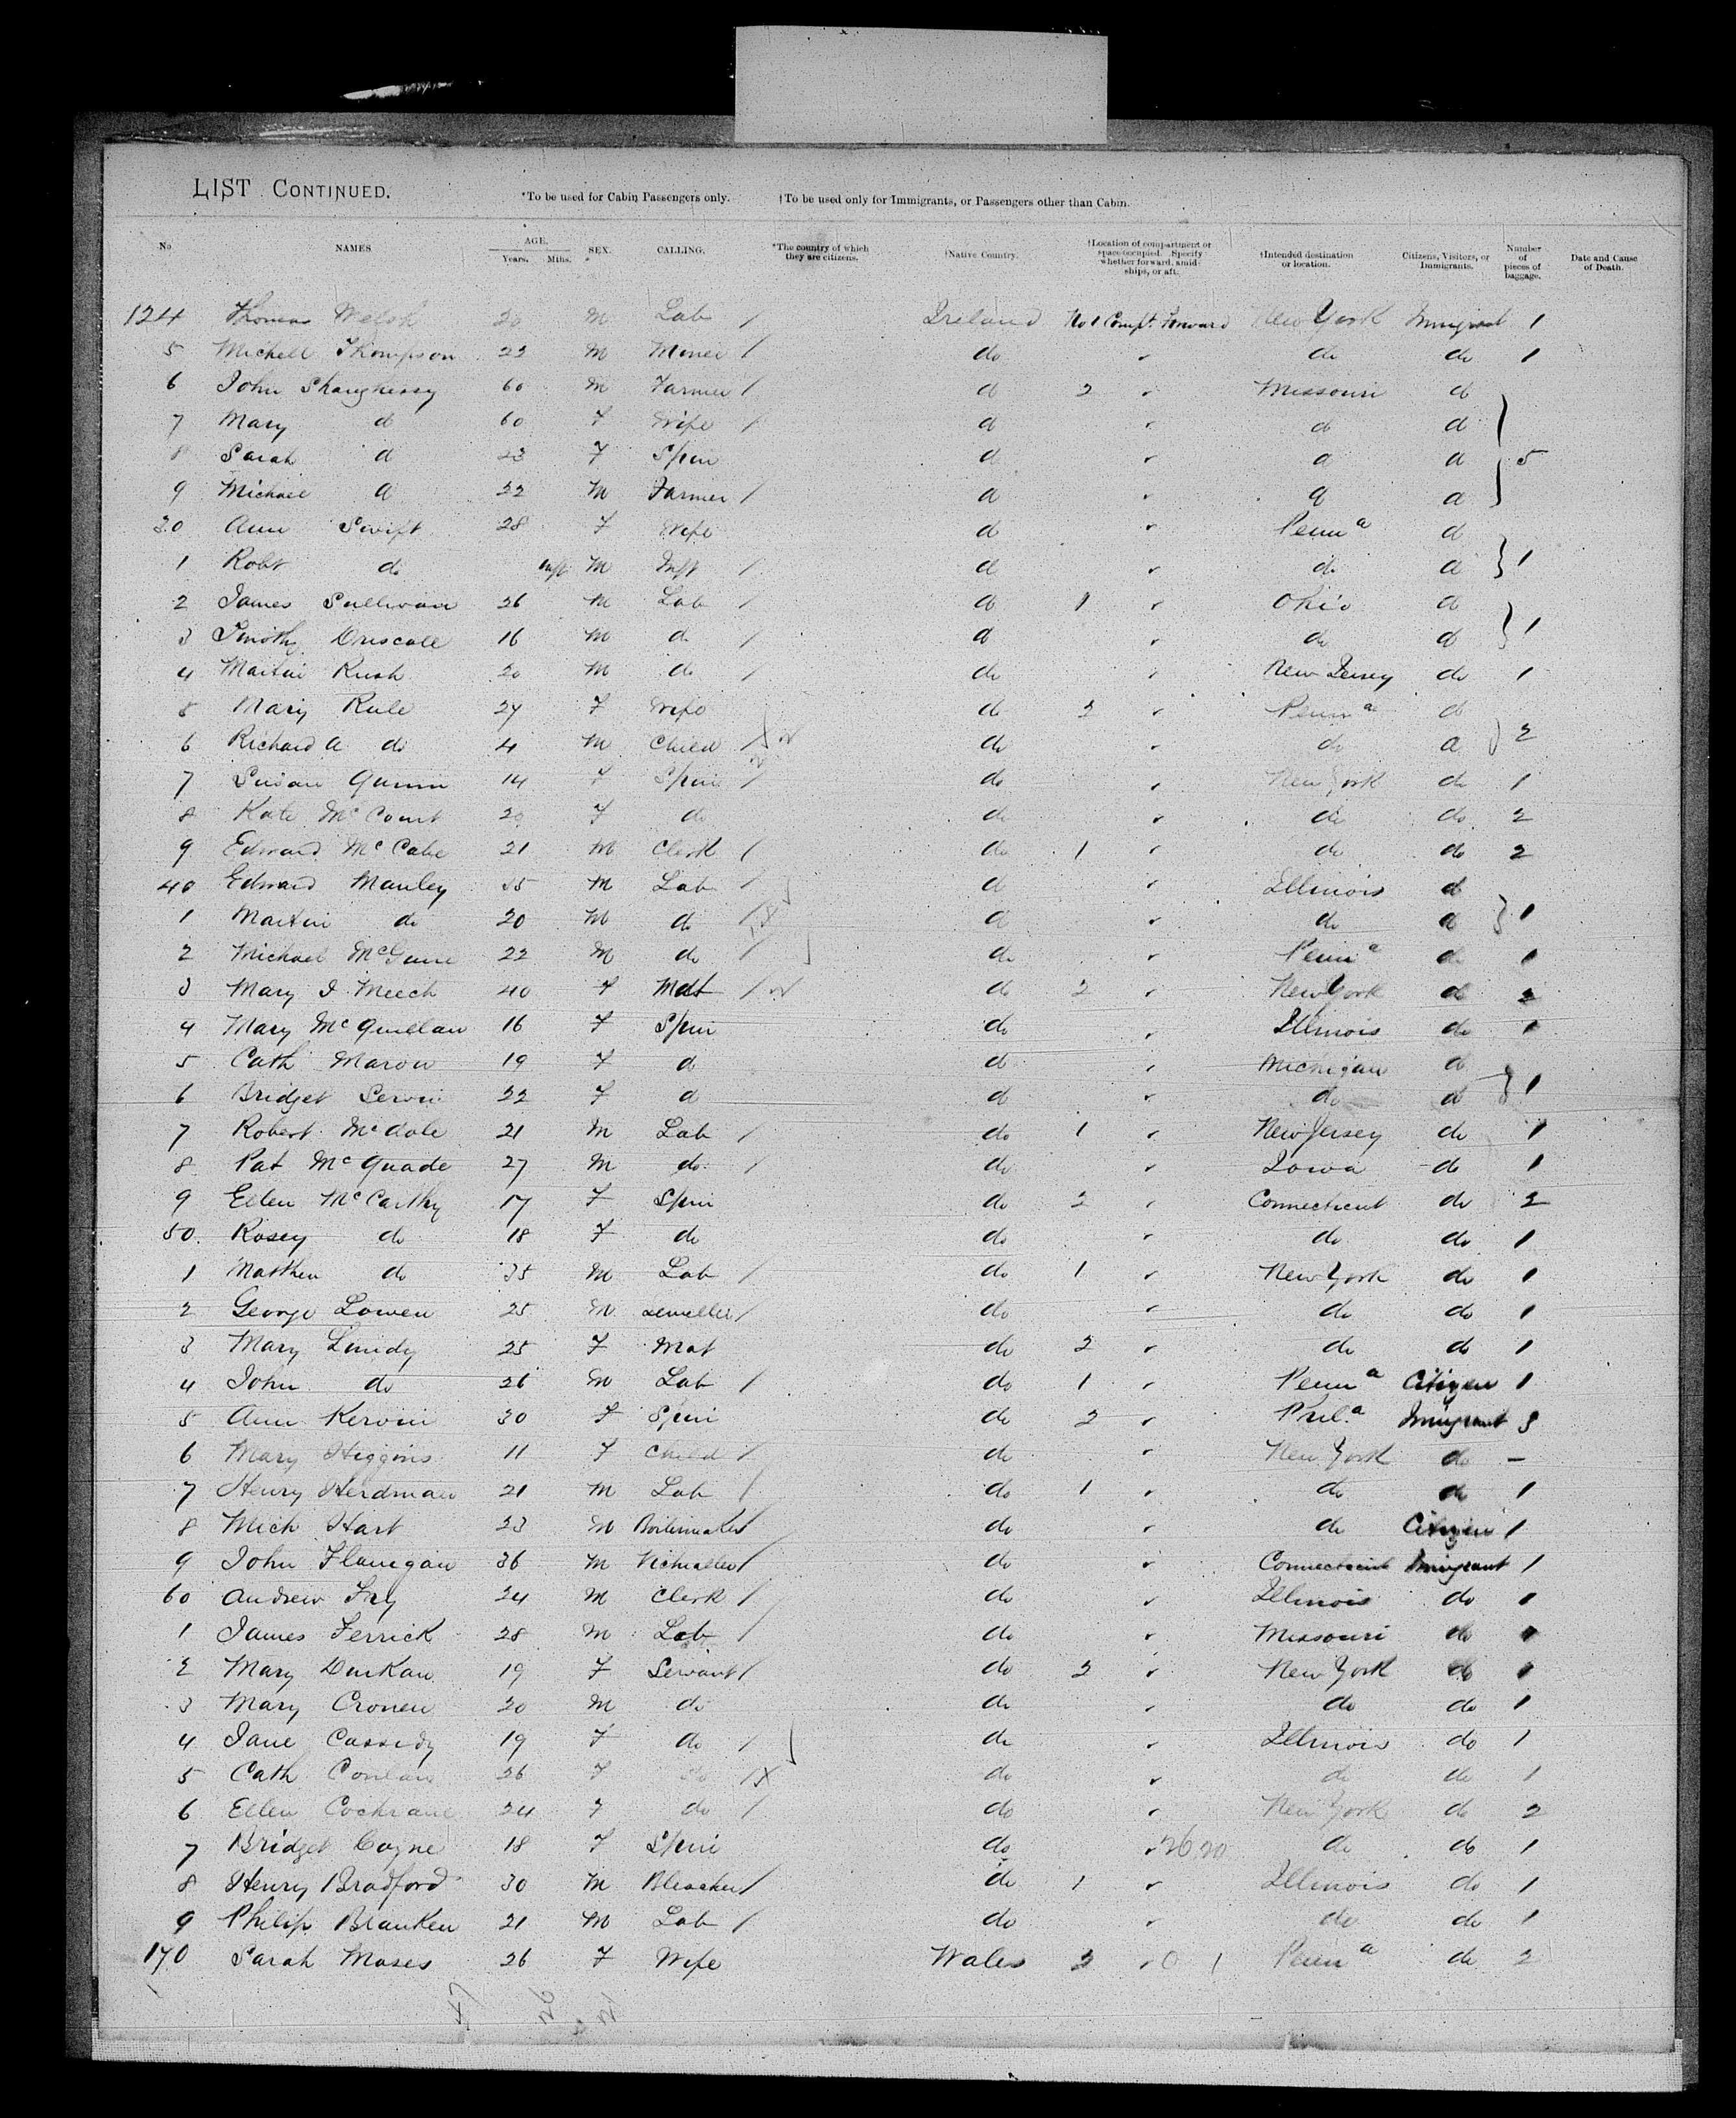 LIST CONTINUED. *To be used for Cabin Passengers only. †To be used only for Immigrants, or Passengers other than Cabin.
No NAMES AGE. Years. Mths. SEX. CALLING. *The country of which they are citizens. †Native Country. †Location of compartment or space occupied. Specify whether forward, amidships, or aft. †Intended destination or location. Citizens, Visitors, or Immigrants. Number of pieces of baggage. Date and Cause of Death.
124 Thomas Welsh 20 M Lab / Ireland No 1 Compt. Forward New York Immigrant 1
5 Michell Thompson 22 M Miner / do " do do 1
6 John Shaughnessy 60 M Farmer / do 2 " Missouri do
7 Mary do 60 F Wife / do " do do
8 Sarah do 23 F Spin do " do do 5
9 Michael do 22 M Farmer / do " do do
30 Ann Swift 28 F Wife do " Penna do
1 Robt do Inft M Inft / do " do do 1
2 James Sullivan 26 M Lab / do 1 " Ohio do
3 Timothy Driscoll 16 M do / do " do do 1
4 Martin Rush 20 M do / do " New Jersey do 1
5 Mary Rule 27 F Wife do 2 " Penna do
6 Richard A do 4 M Child / do " do do 2
7 Susan Quinn 14 F Spin / do " New York do 1
8 Kate McCourt 20 F do do " do do 2
9 Edward McCabe 21 M Clerk / do 1 " do do 2
40 Edward Manley 35 M Lab / do " Illinois do
1 Martin do 20 M do / do " do do 1
2 Michael McGuire 22 M do / do " Penna do 1
3 Mary J Meech 40 F Mat / do 2 " New York do 2
4 Mary McQuillan 16 F Spin do " Illinois do 1
5 Cath Marow 19 F do do " Michigan do
6 Bridget Serwin 22 F do do " do do 1
7 Robert McDole 21 M Lab / do 1 " New Jersey do 1
8 Pat McQuade 27 M do / do " Iowa do 1
9 Ellen McCarthy 17 F Spin do 2 " Connecticut do 2
50 Rosey do 18 F do do " do do 1
1 Matthew do 35 M Lab / do 1 " New York do 1
2 George Lowen 25 M Jeweller / do " do do 1
3 Mary Lundy 25 F Mat do 2 " do do 1
4 John do 26 M Lab / do 1 " Penna Citizen 1
5 Ann Kerwin 30 F Spin do 2 " Phila Immigrant 3
6 Mary Higgins 11 F Child / do " New York do –
7 Henry Herdman 21 M Lab / do 1 " do do 1
8 Mich Hart 23 M Boilermaker / do " do Citizen 1
9 John Flanegan 36 M Victualler / do " Connecticut Immigrant 1
60 Andrew Fry 24 M Clerk / do " Illinois do 1
1 James Ferrick 28 M Lab / do " Missouri do 1
2 Mary Durkan 19 F Servant / do 2 " New York do 1
3 Mary Cronen 20 M do do " do do 1
4 Jane Cassidy 19 F do / do " Illinois do 1
5 Cath Conlan 26 F do / X do " do do 1
6 Ellen Cochrane 24 F do / do " New York do 2
7 Bridget Coyne 18 F Spin do " do do 1
8 Henry Bradford 30 M Bleacher / do 1 " Illinois do 1
9 Philip Branken 21 M Lab / do " do do 1
170 Sarah Moses 26 F Wife Wales 2 " Penna do 2